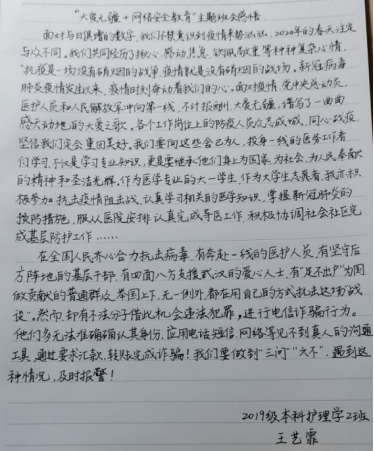 “大爱无疆+网络安全教育”主题班会感悟
面对与日俱增的数字,我们不禁意识到疫情来势汹汹。2020年的春天注定
与众不同。我们共同经历了揪心、感动、焦急、欢欣鼓舞等种种复杂心情。
“抗疫是一场没有硝烟的战争,疫情就是没有硝烟的战场。新冠病毒
肺炎疫情发生以来,疫情时刻牵动着我们的心。面对疫情,党中央总动员,
医护人员和人民解放军冲向第一线,不计报酬,大爱无疆,谱写了一曲曲
感天动地的大爱之歌。各个工作岗位上的防疫人员众志成城,同心战疫
坚信我们定会重回美好。我们要向这些舍己为人,投身一线的医务工作者
们学习,不仅是学习专业知识,更是要继承他们身上为国家,为社会,为人民奉献
的精神和圣洁光辉。作为医学专业的大一学生,作为大学生志愿者,我亦积
极参加抗击疫情阻击战,认真学习相关的医学知识,掌握新冠肺炎的
预防措施,服从医院安排,认真完成导医工作,积极协调社会社区完
成基层防护工作……
在全国人民齐心合力抗击病毒,有奔赴一线的医护人员,有坚守后
方阵地的基层干部,有四面八方支援武汉的爱心人士,有“足不出户”为国
做贡献的普通群众,举国上下,无一例外,都在用自己的方式抗击这场“战
役”。然而,却有不法分子借此机会违法犯罪,进行电信诈骗行为。
他们多无法准确确认其身份,应用电话短信,网络等见不到真人的沟通
工具,通过要求汇款,转账完成诈骗!我们要做到“三问”“六不”,遇到这
种情况,及时报警!
2019级本科护理学2班
王艺霏